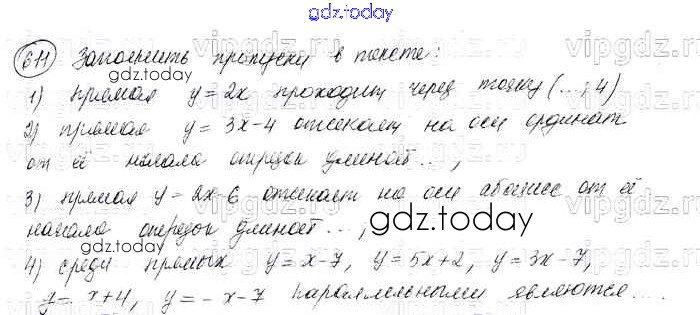 gdz.today
611 Заполнить пропуски в тексте:
gdz.today
1) прямая y=2x проходит через точку (...; 4)
2) прямая y = 3x-4 отсекает на оси ординат
от её начала отрезок длиной ...,
3) прямая y = 2x-6 отсекает на оси абсцисс от её
начала отрезок длиной ...,
gdz.today
4) среди прямых y=x-7, y=5x+2, y=3x-7,
y= x+4, y=-x-7 параллельными являются ....
gdz.today